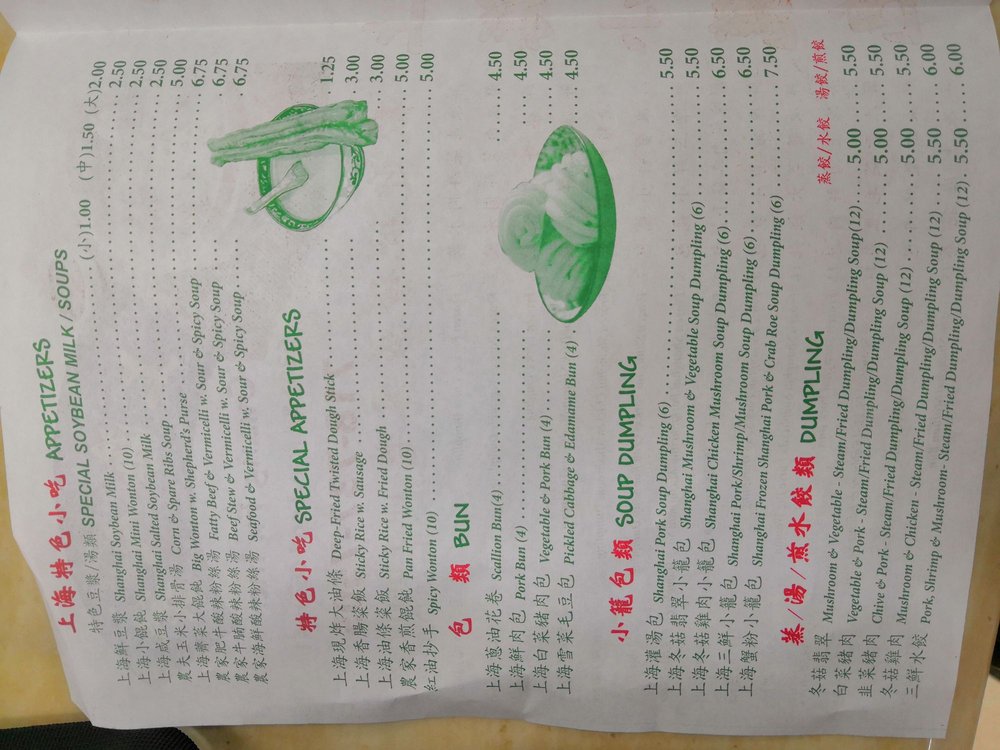 上海特色小吃 APPETIZERS
特色豆漿/湯類 SPECIAL SOYBEAN MILK / SOUPS
上海鮮豆漿 Shanghai Soybean Milk (小)1.00 (中)1.50 (大)2.00
上海小餛飩 Shanghai Mini Wonton (10) 2.50
上海咸豆漿 Shanghai Salted Soybean Milk 2.50
農夫玉米小排骨湯 Corn & Spare Ribs Soup 2.50
上海薺菜大餛飩 Big Wonton w. Shepherd's Purse 5.00
農家肥牛酸辣粉絲湯 Fatty Beef & Vermicelli w. Sour & Spicy Soup 6.75
農家牛腩酸辣粉絲湯 Beef Stew & Vermicelli w. Sour & Spicy Soup 6.75
農家海鮮酸辣粉絲湯 Seafood & Vermicelli w. Sour & Spicy Soup 6.75
特色小吃 SPECIAL APPETIZERS
上海現炸大油條 Deep-Fried Twisted Dough Stick 1.25
上海香腸菜飯 Sticky Rice w. Sausage 3.00
上海油條菜飯 Sticky Rice w. Fried Dough 3.00
農家香煎餛飩 Pan Fried Wonton (10) 5.00
紅油抄手 Spicy Wonton (10) 5.00
包類 BUN
上海蔥油花卷 Scallion Bun(4) 4.50
上海鮮肉包 Pork Bun (4) 4.50
上海白菜豬肉包 Vegetable & Pork Bun (4) 4.50
上海雪菜毛豆包 Pickled Cabbage & Edamame Bun (4) 4.50
小籠包類 SOUP DUMPLING
上海灌湯包 Shanghai Pork Soup Dumpling (6) 5.50
上海冬菇翡翠小籠包 Shanghai Mushroom & Vegetable Soup Dumpling (6) 5.50
上海冬菇雞肉小籠包 Shanghai Chicken Mushroom Soup Dumpling (6) 6.50
上海三鮮小籠包 Shanghai Pork/Shrimp/Mushroom Soup Dumpling (6) 6.50
上海蟹粉小籠包 Shanghai Frozen Shanghai Pork & Crab Roe Soup Dumpling (6) 7.50
蒸/湯/煎水餃類 DUMPLING 蒸餃/水餃 湯餃/煎餃
冬菇翡翠 Mushroom & Vegetable - Steam/Fried Dumpling/Dumpling Soup(12) 5.00 5.50
白菜豬肉 Vegetable & Pork - Steam/Fried Dumpling/Dumpling Soup (12) 5.00 5.50
韭菜豬肉 Chive & Pork - Steam/Fried Dumpling/Dumpling Soup (12) 5.00 5.50
冬菇雞肉 Mushroom & Chicken - Steam/Fried Dumpling/Dumpling Soup (12) 5.50 6.00
三鮮水餃 Pork, Shrimp & Mushroom- Steam/Fried Dumpling/Dumpling Soup (12) 5.50 6.00